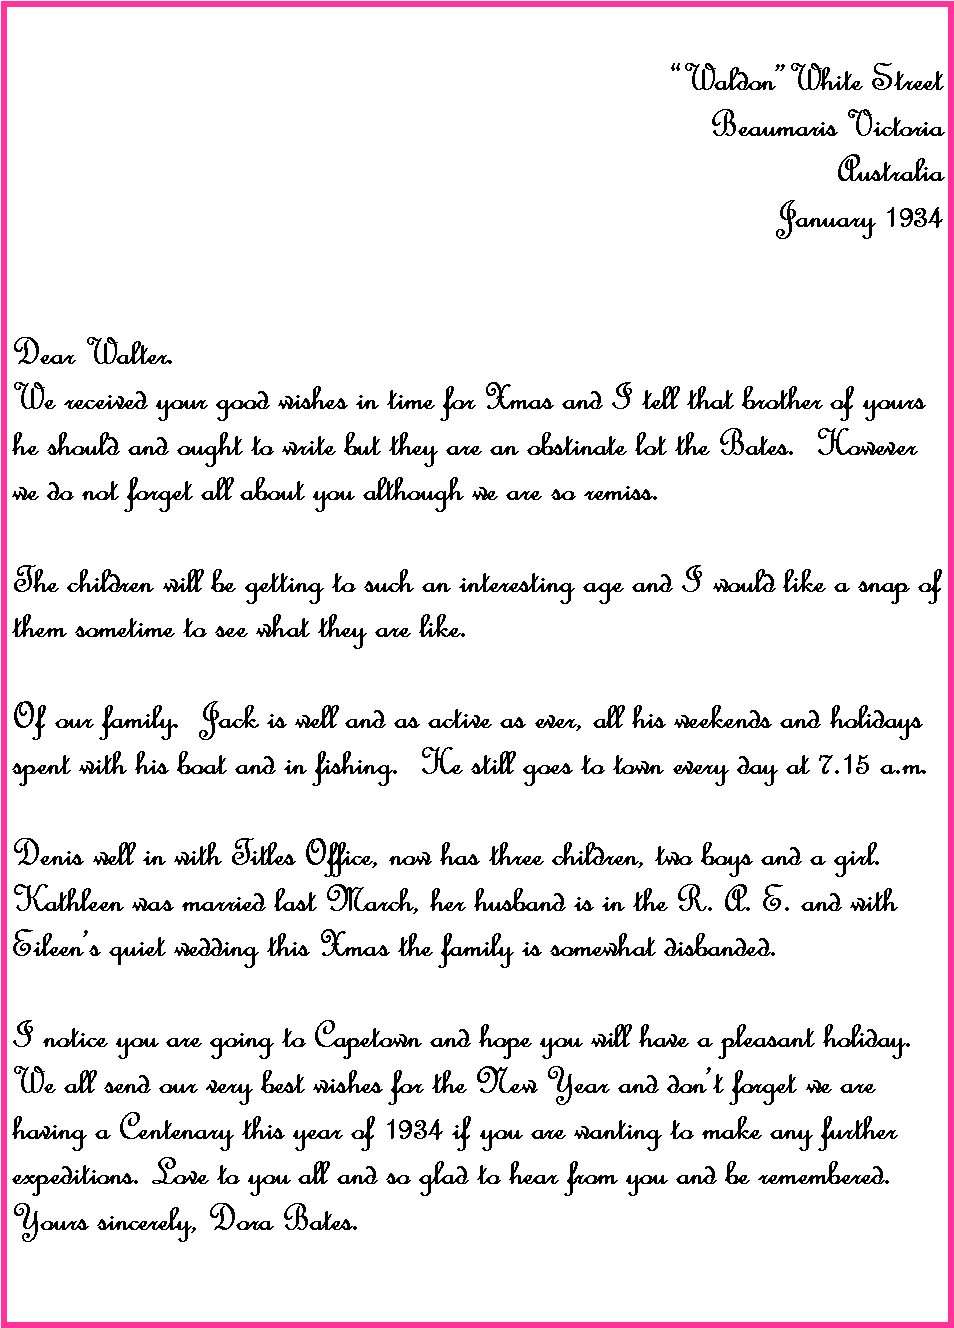 “Waldon” White Street
Beaumaris Victoria
Australia
January 1934
Dear Walter.
We received your good wishes in time for Xmas and I tell that brother of yours
he should and ought to write but they are an obstinate lot the Bates. However
we do not forget all about you although we are so remiss.
The children will be getting to such an interesting age and I would like a snap of
them sometime to see what they are like.
Of our family. Jack is well and as active as ever, all his weekends and holidays
spent with his boat and in fishing. He still goes to town every day at 7.15 a.m.
Denis well in with Titles Office, now has three children, two boys and a girl.
Kathleen was married last March, her husband is in the R. A. E. and with
Eileen’s quiet wedding this Xmas the family is somewhat disbanded.
I notice you are going to Capetown and hope you will have a pleasant holiday.
We all send our very best wishes for the New Year and don’t forget we are
having a Centenary this year of 1934 if you are wanting to make any further
expeditions. Love to you all and so glad to hear from you and be remembered.
Yours sincerely, Dora Bates.